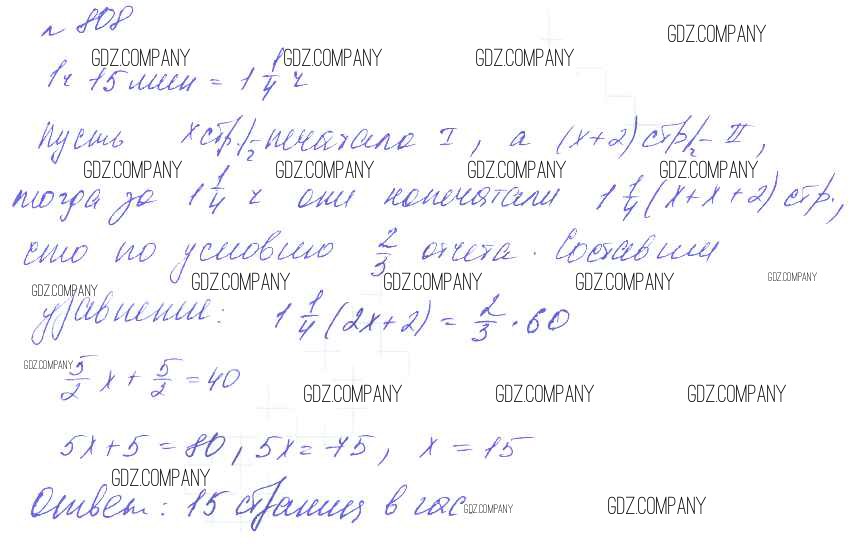 № 808
GDZ.COMPANY
GDZ.COMPANY GDZ.COMPANY GDZ.COMPANY
1ч 15 мин = 1 1/4 ч
Пусть x стр/ч печатала I, а (x+2) стр/ч – II,
GDZ.COMPANY GDZ.COMPANY GDZ.COMPANY GDZ.COMPANY
тогда за 1 1/4 ч они напечатали 1 1/4 (x+x+2) стр.,
что по условию 2/3 отчета. Составим
GDZ.COMPANY GDZ.COMPANY GDZ.COMPANY GDZ.COMPANY GDZ.COMPANY
уравнение: 1 1/4 (2x+2) = 2/3 · 60
GDZ.COMPANY
5/2 x + 5/2 = 40
GDZ.COMPANY GDZ.COMPANY GDZ.COMPANY
5x+5 = 80, 5x = 75, x = 15
GDZ.COMPANY
Ответ: 15 страниц в час
GDZ.COMPANY GDZ.COMPANY